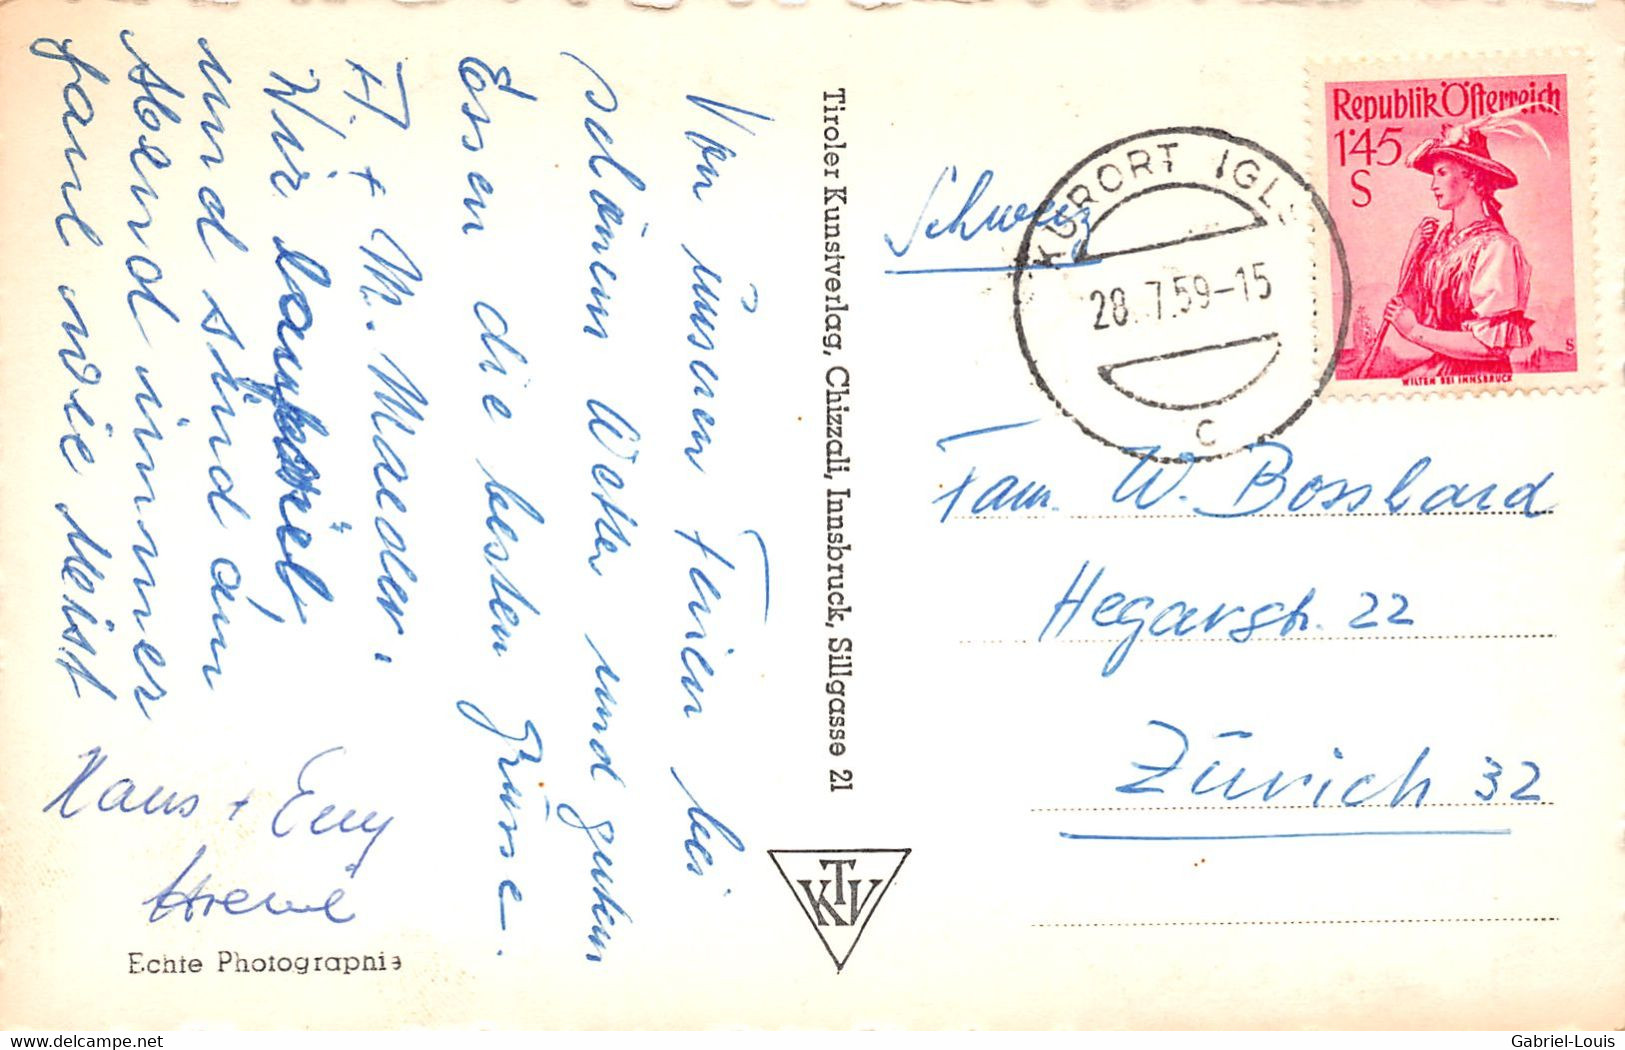 Von unseren Ferien bei
schönem Wetter und gutem
Essen die besten Grüsse.
H. + M. Maeder.
Wir laufen viel
und sind am
Abend immer
faul wie Meist
Hans + Emy
Tiroler Kunstverlag, Chizzali, Innsbruck, Sillgasse 21
KTV
Echte Photographie
Schweiz
KURORT IGLS
28.7.59-15
C
Republik Österreich
1'45
S
WILTEN BEI INNSBRUCK
Fam. W. Bosshard
Hegarstr. 22
Zürich 32
delcampe.net
Gabriel-Louis